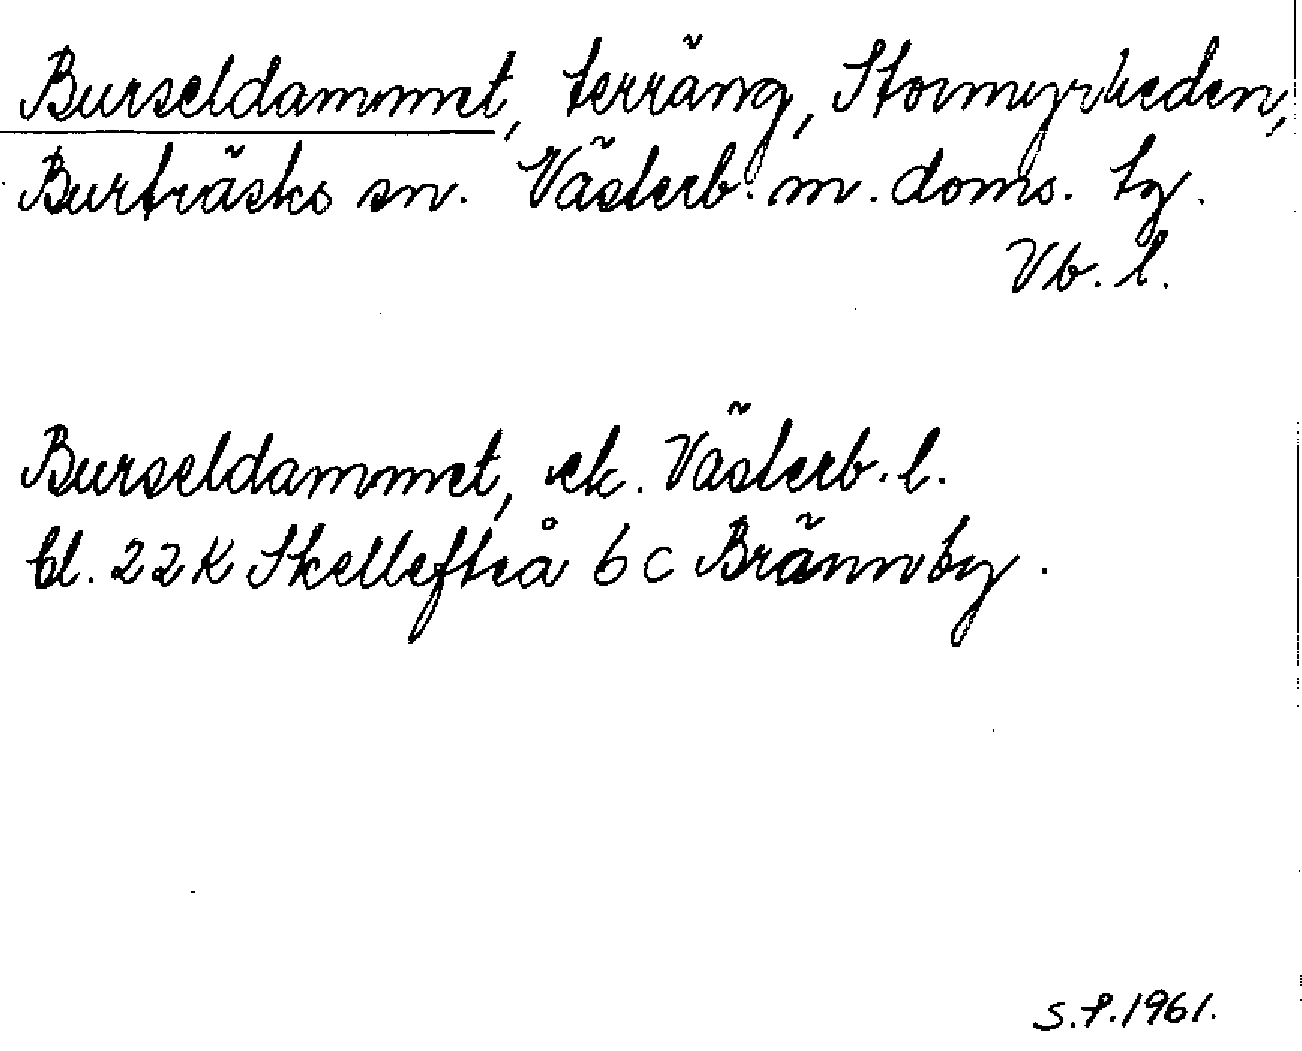 Burseldammet, terräng, Stormyrheden,
Burträsks sn. Västerb. m. doms. tg.
Vb. l.
Burseldammet, ek. Västerb. l.
bl. 22 K Skellefteå 6 c Brännby.
S.P. 1961.